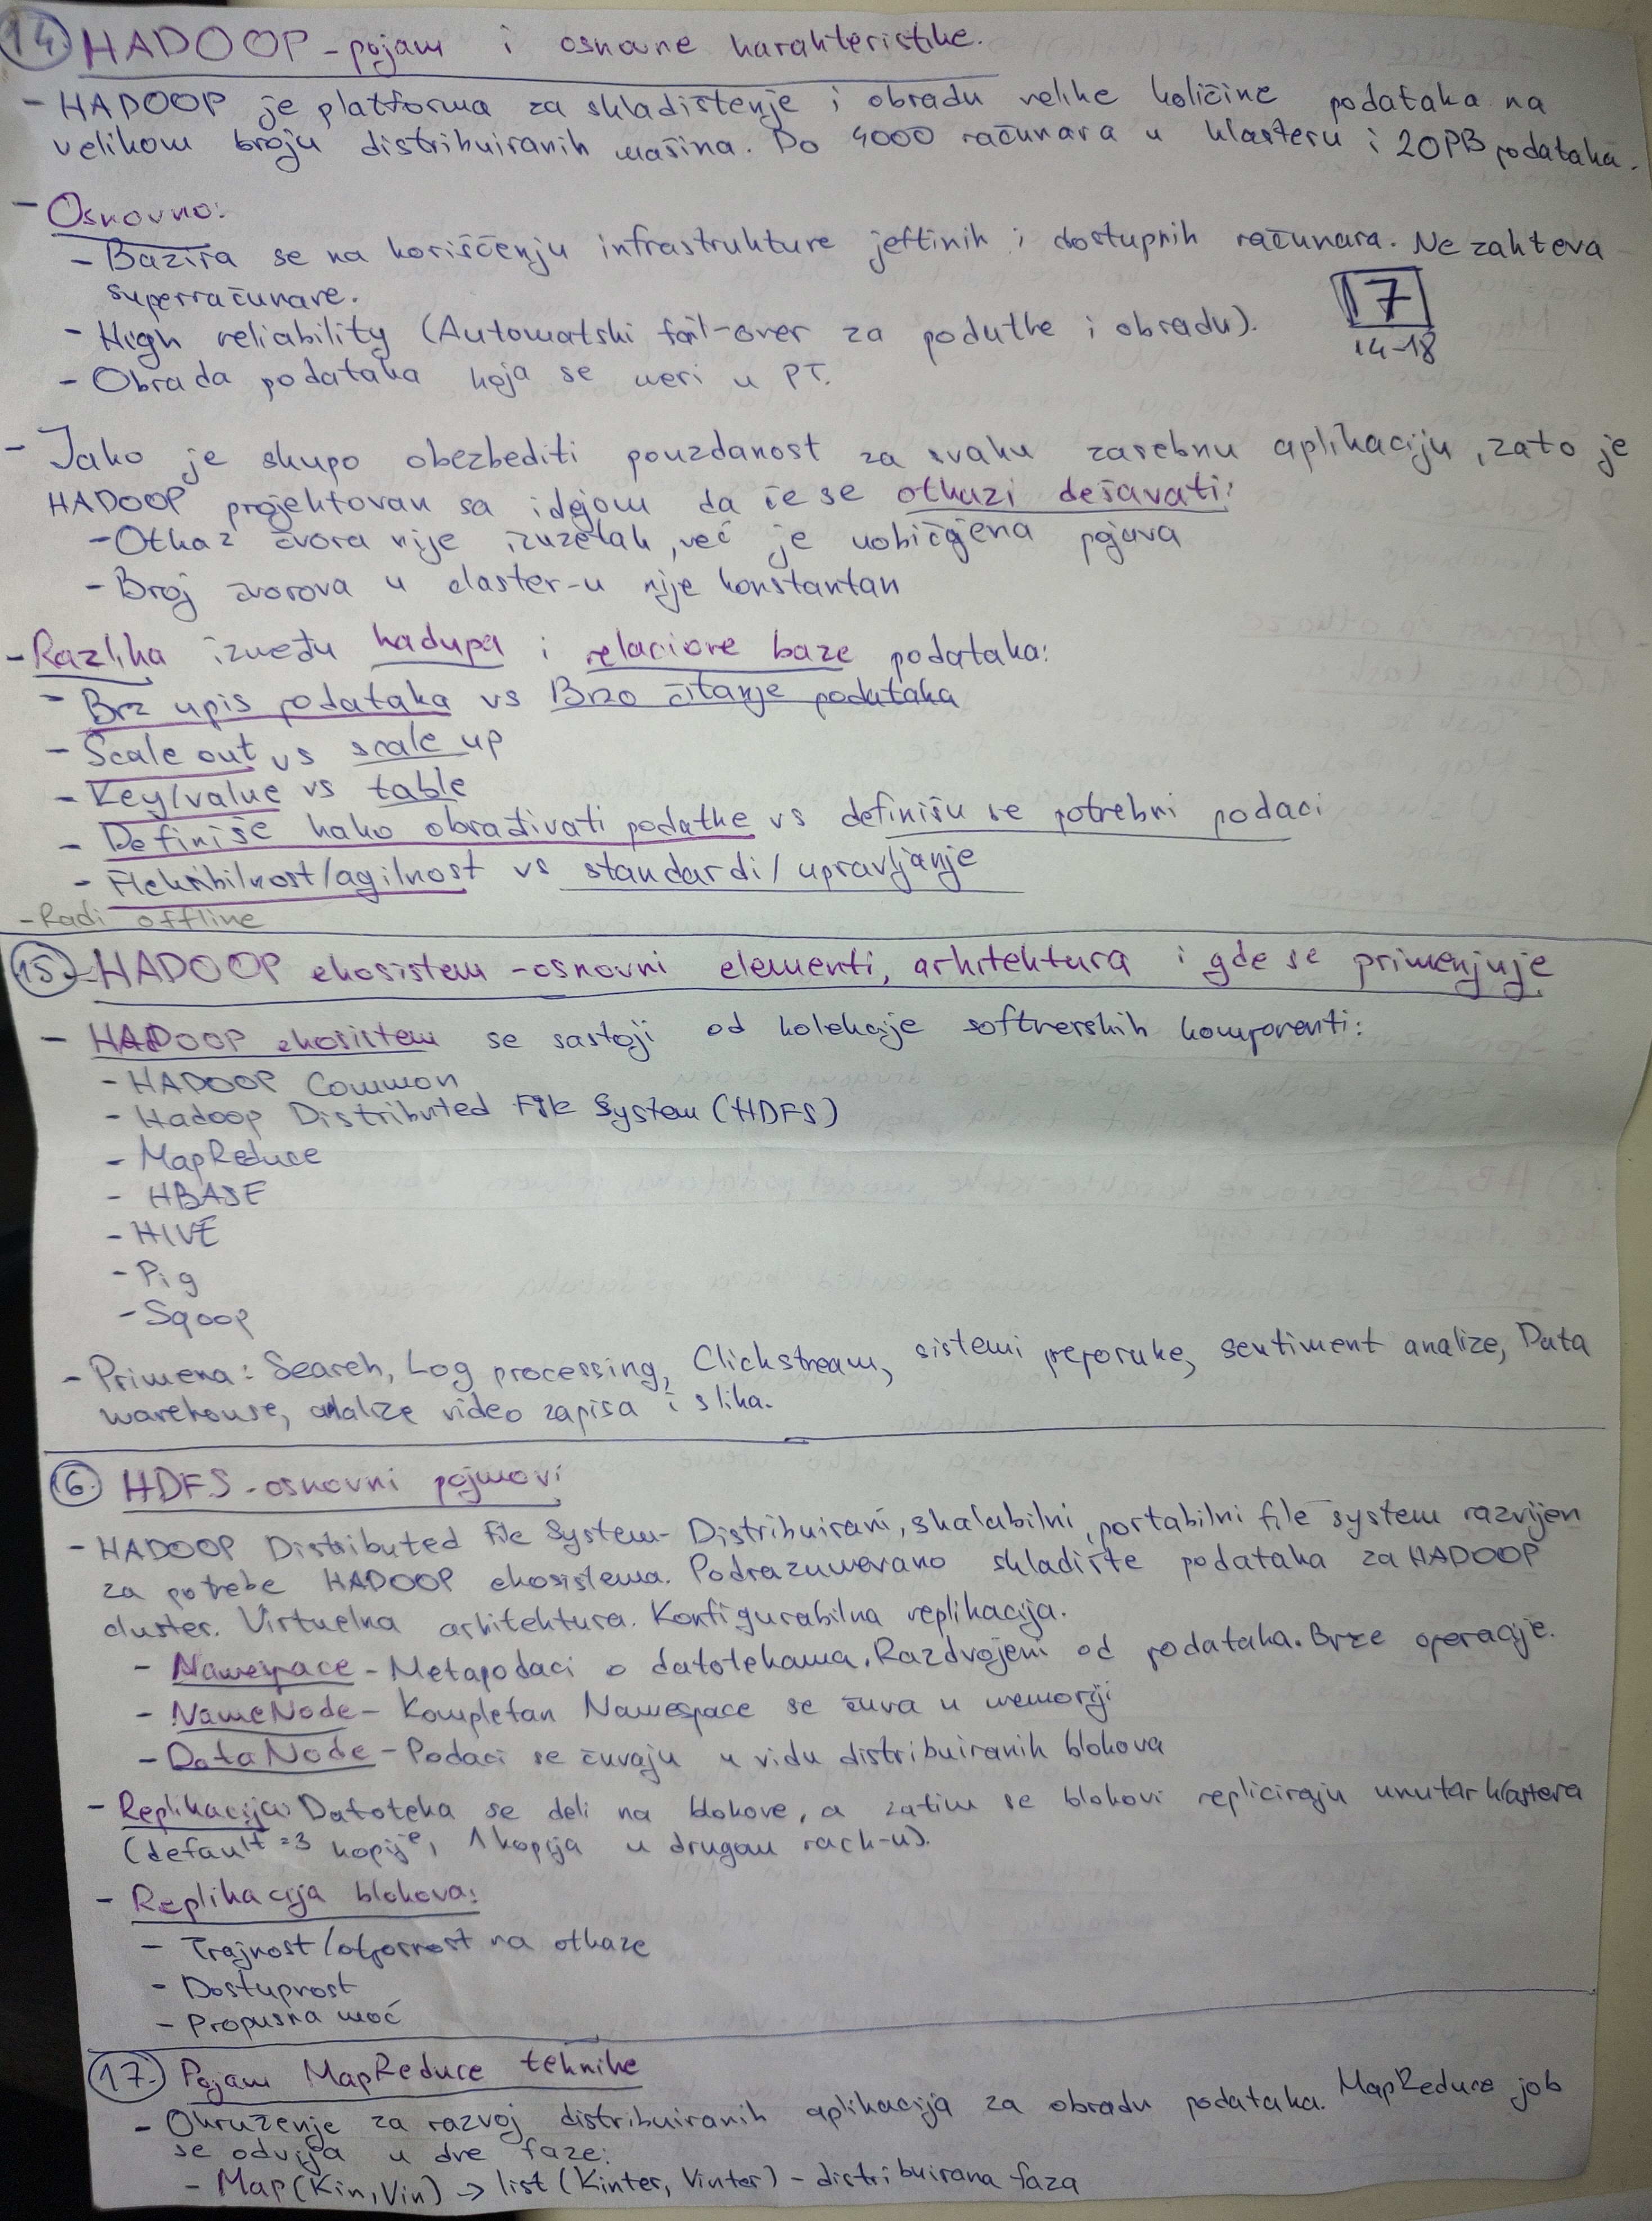 14. HADOOP - pojam i osnovne karakteristike.
- HADOOP je platforma za skladištenje i obradu velike količine podataka na
velikom broju distribuiranih mašina. Do 4000 računara u klasteru i 20PB podataka.
- Osnovno:
- Bazira se na koriščenju infrastrukture jeftinih i dostupnih računara. Ne zahteva
superračunare.
- High reliability (Automatski fail-over za podatke i obradu).
17
14-18
- Obrada podataka koja se meri u PT.
- Jako je skupo obezbediti pouzdanost za svaku zasebnu aplikaciju, zato je
HADOOP projektovan sa idejom da će se otkazi dešavati:
- Otkaz čvora nije izuzetak, već je uobičajena pojava
- Broj čvorova u claster-u nije konstantan
- Razlika između hadupa i relacione baze podataka:
- Brz upis podataka vs Brzo čitanje podataka
- Scale out vs scale up
- Key/value vs table
- Definiše kako obrađivati podatke vs definišu se potrebni podaci
- Fleksibilnost/agilnost vs standardi/upravljanje
- Radi offline
15. HADOOP ekosistem - osnovni elementi, arhitektura i gde se primenjuje
- HADOOP ekosistem se sastoji od kolekcije softverskih komponenti:
- HADOOP Common
- Hadoop Distributed File System (HDFS)
- MapReduce
- HBASE
- HIVE
- Pig
- Sqoop
- Primena: Search, Log processing, Clickstream, sistemi preporuke, sentiment analize, Data
warehouse, analize video zapisa i slika.
16. HDFS - osnovni pojmovi
- HADOOP Distributed File System - Distribuirani, skalabilni, portabilni file system razvijen
za potrebe HADOOP ekosistema. Podrazumevano skladište podataka za HADOOP
cluster. Virtuelna arhitektura. Konfigurabilna replikacija.
- Namespace - Metapodaci o datotekama. Razdvojeni od podataka. Brze operacije.
- NameNode - Kompletan Namespace se čuva u memoriji
- DataNode - Podaci se čuvaju u vidu distribuiranih blokova
- Replikacija: Datoteka se deli na blokove, a zatim se blokovi repliciraju unutar klastera
(default = 3 kopije, 1 kopija u drugom rack-u).
- Replikacija blokova:
- Trajnost/otpornost na otkaze
- Dostupnost
- Propusna moć
17. Pojam MapReduce tehnike
- Okruženje za razvoj distribuiranih aplikacija za obradu podataka. MapReduce job
se odvija u dve faze:
- Map(Kin, Vin) -> list (Kinter, Vinter) - distribuirana faza